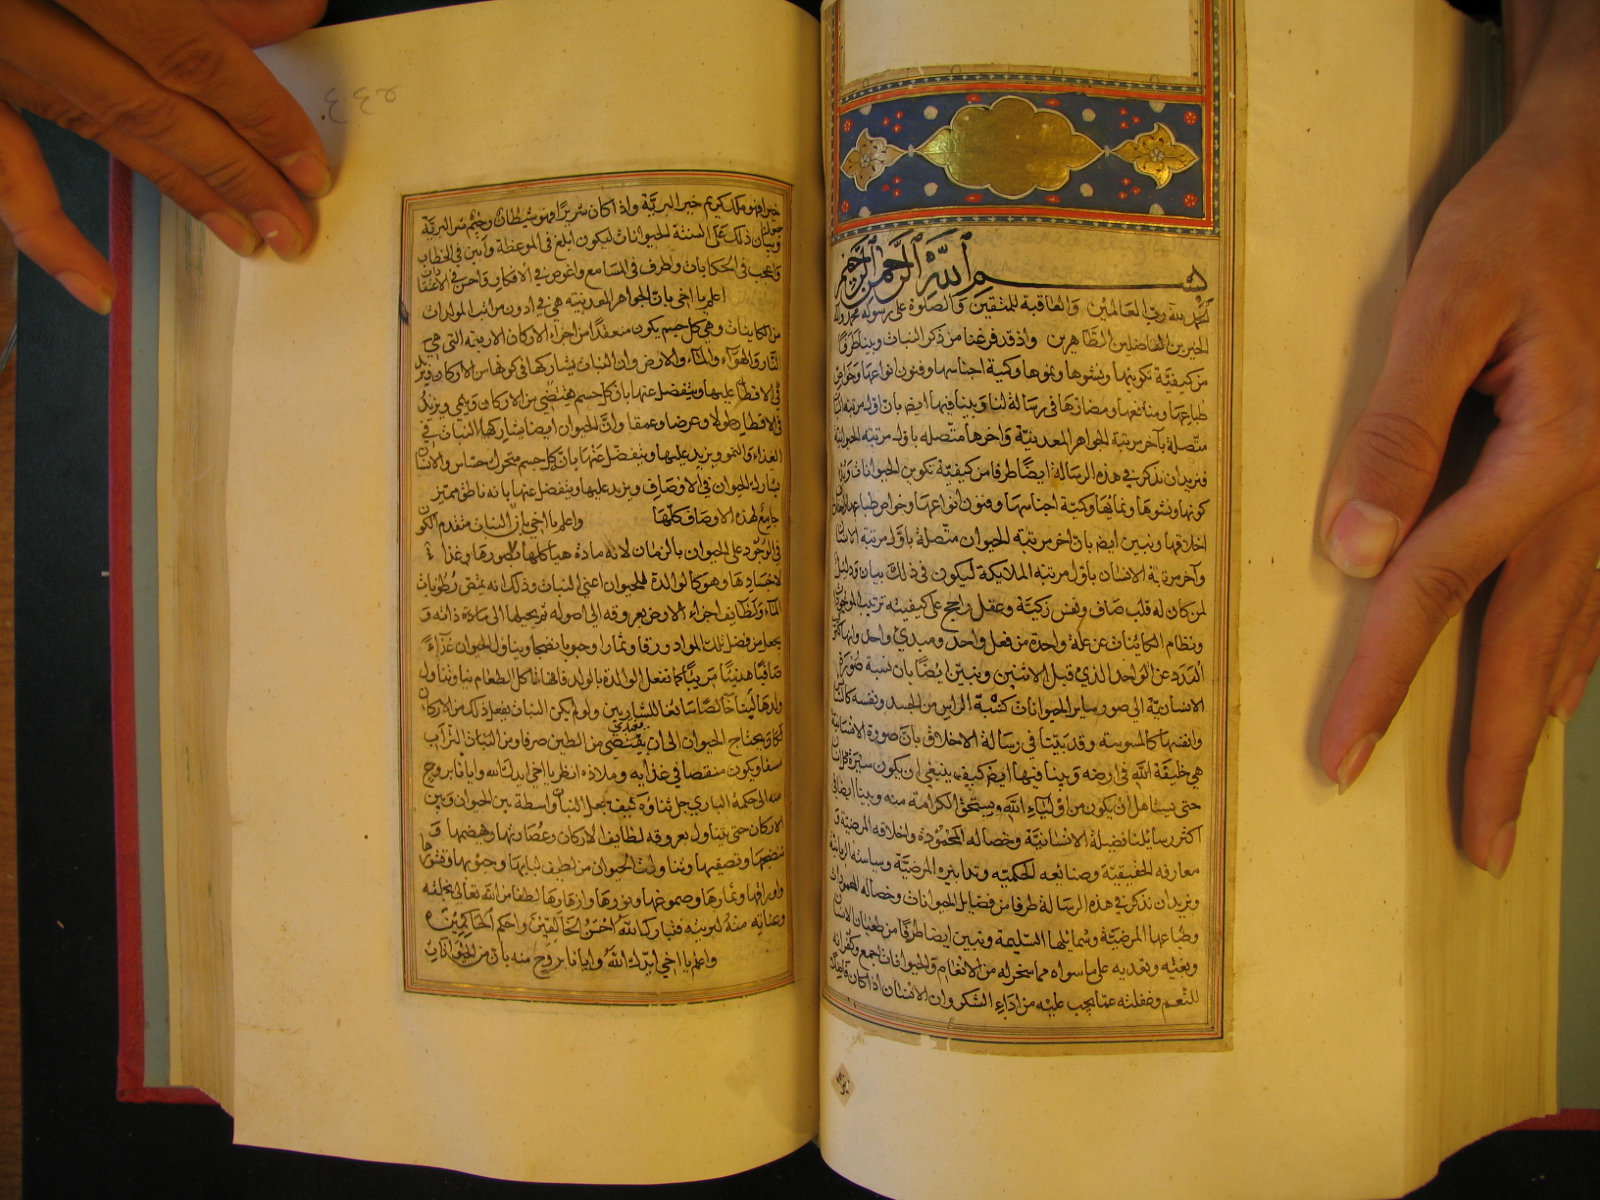 بسم الله الرحمن الرحيم
الحمد لله رب العالمين والعاقبة للمتقين والصلوة على رسوله محمد واله
الخيرين الفاضلين الطاهرين واذ قد فرغنا من ذكر النبات وبينا طرفا
من كيفية تكوينها ونشوها ونموها وكمية اجناسها وفنون انواعها وخواص
طباعها ومنافعها ومضارها في رسالة لنا وبينا فيها ايضا بان اول مرتبة النبات
متصلة بآخر مرتبة الجواهر المعدنية واخرها متصله باول مرتبة الحيوانية
فنريد ان نذكر في هذه الرسالة ايضا طرفا من كيفية تكوين الحيوانات وبدا
كونها ونشوها ونمائها وكمية اجناسها وفنون انواعها وخواص طباعها واختلاف
اخلاقها ونبين ايضا بان اخر مرتبة الحيوان متصلة باول مرتبة الانسان
وآخر مرتبة الانسان باول مرتبة الملايكة ليكون في ذلك بيان ودليل
لمن كان له قلب صاف ونفس زكية وعقل راجح على كيفية ترتيب الموجودات
ونظام الكائنات عن علة واحدة من فعل واحد ومبدي واحد وانها كترتيب
العدد عن الواحد الذي قبل الاثنين ونبين ايضا بان نسبة صورة
الانسانية الى صور ساير الحيوانات كنسبة الراس من الجسد ونفسه كالسايس
وانفسها كالمسوسة وقد بينا في رسالة الاخلاق بان صورة الانسانية
هي خليفة الله في ارضه وبينا فيها ايضا كيف ينبغي ان يكون سيرة كل انسان
حتى يستاهل ان يكون من اولياء الله ويستحق الكرامة منه وبينا ايضا في
اكثر رسايلنا فضيلة الانسانية وخصاله المحمودة واخلاقه المرضية و
معارفه الحقيقية وصنائعه الحكمية وتدابيره المرضية وسياسته الربانية
ونريد ان نذكر في هذه الرسالة طرفا من فضايل الحيوانات وخصاله المحمودات
وطباعها المرضية وشمائلها السليمة ونبين ايضا طرفا من طغيان الانسان
وبغيه وتعديه على ما سواه مما سخر له من الانعام والحيوانات اجمع وكفرانه
للنعم وغفلته عما يجب عليه من اداء الشكر وان الانسان اذا كان فاضلا
خيرا فهو ملك كريم خير البرية واذا كان شريرا فهو شيطان رجيم شر البرية
وجعلنا بيان ذلك على السنة الحيوانات ليكون ابلغ في الموعظة وابين في الخطاب
واعجب في الحكايات واطرف في المسامع واغوص في الافكار واحسن في الاعتبار
اعلم يا اخي بان الجواهر المعدنية هي في ادون مراتب المولدات
من الكاينات وهي كل جسم يكون منعقدا من اجزاء الاركان الاربعة التي هي
النار والهواء والماء والارض وان النبات يشاركها في كونها من الاركان ويزيد
في الاقطار عليها وينفصل عنها بان كل جسم يغتذي من الاركان وينمي ويزيد
في الاقطار طولا وعرضا وعمقا وان الحيوان ايضا يشاركها النبات في
الغذاء والنمو ويزيد عليها وينفصل عنها بان كل جسم متحرك حساس والانسان
يشارك الحيوان في الاوصاف ويزيد عليها وينفصل عنها بانه ناطق مميز
جامع لهذه الاوصاف كلها واعلم يا اخي بان النبات متقدم الكون
في الوجود على الحيوان بالزمان لانه مادة هيا كلها لصورها وغذا
لاجسادها وهو كالوالدة للحيوان اعني النبات وذلك انه يمتص رطوبات
الماء ولطايف اجزاء الارض بعروقه الى اصوله ثم يحيلها الى مادة ذاته و
يجعل من فضل تلك المواد ورقا وثمارا وحبوبا نضجا ويتناول الحيوان غذاء
صافيا هنيئا مريئا كما تفعل الوالدة بالولد فانها تاكل الطعام نيا وتناول
ولدها لبنا خالصا سائغا للشاربين ولو لم يكن النبات يفعل ذلك من الاركان
لكان يحتاج الحيوان الى ان يغتذي من الطين صرفا ومن النبات التراب
سفا ويكون منغصا في غذايه وملاذه انظر يا اخي ايدك الله وايانا بروح
منه الى حكمة الباري جل ثناؤه كيف جعل النبات واسطة بين الحيوان وبين
الاركان حتى يتناول بعروقه لطايف الاركان وعصاراتها ويهضمها و
ينضجها ويصفيها ويناول الحيوان من لطيف لبابها وحبوبها وقشورها
واوراقها وثمارها وصموغها ونورها وازهارها لطفا من الله تعالى بخلقه
وعناية منه لبريته فتبارك الله احسن الخالقين واحكم الحاكمين
واعلم يا اخي ايدك الله وايانا بروح منه بان من الحيوانات